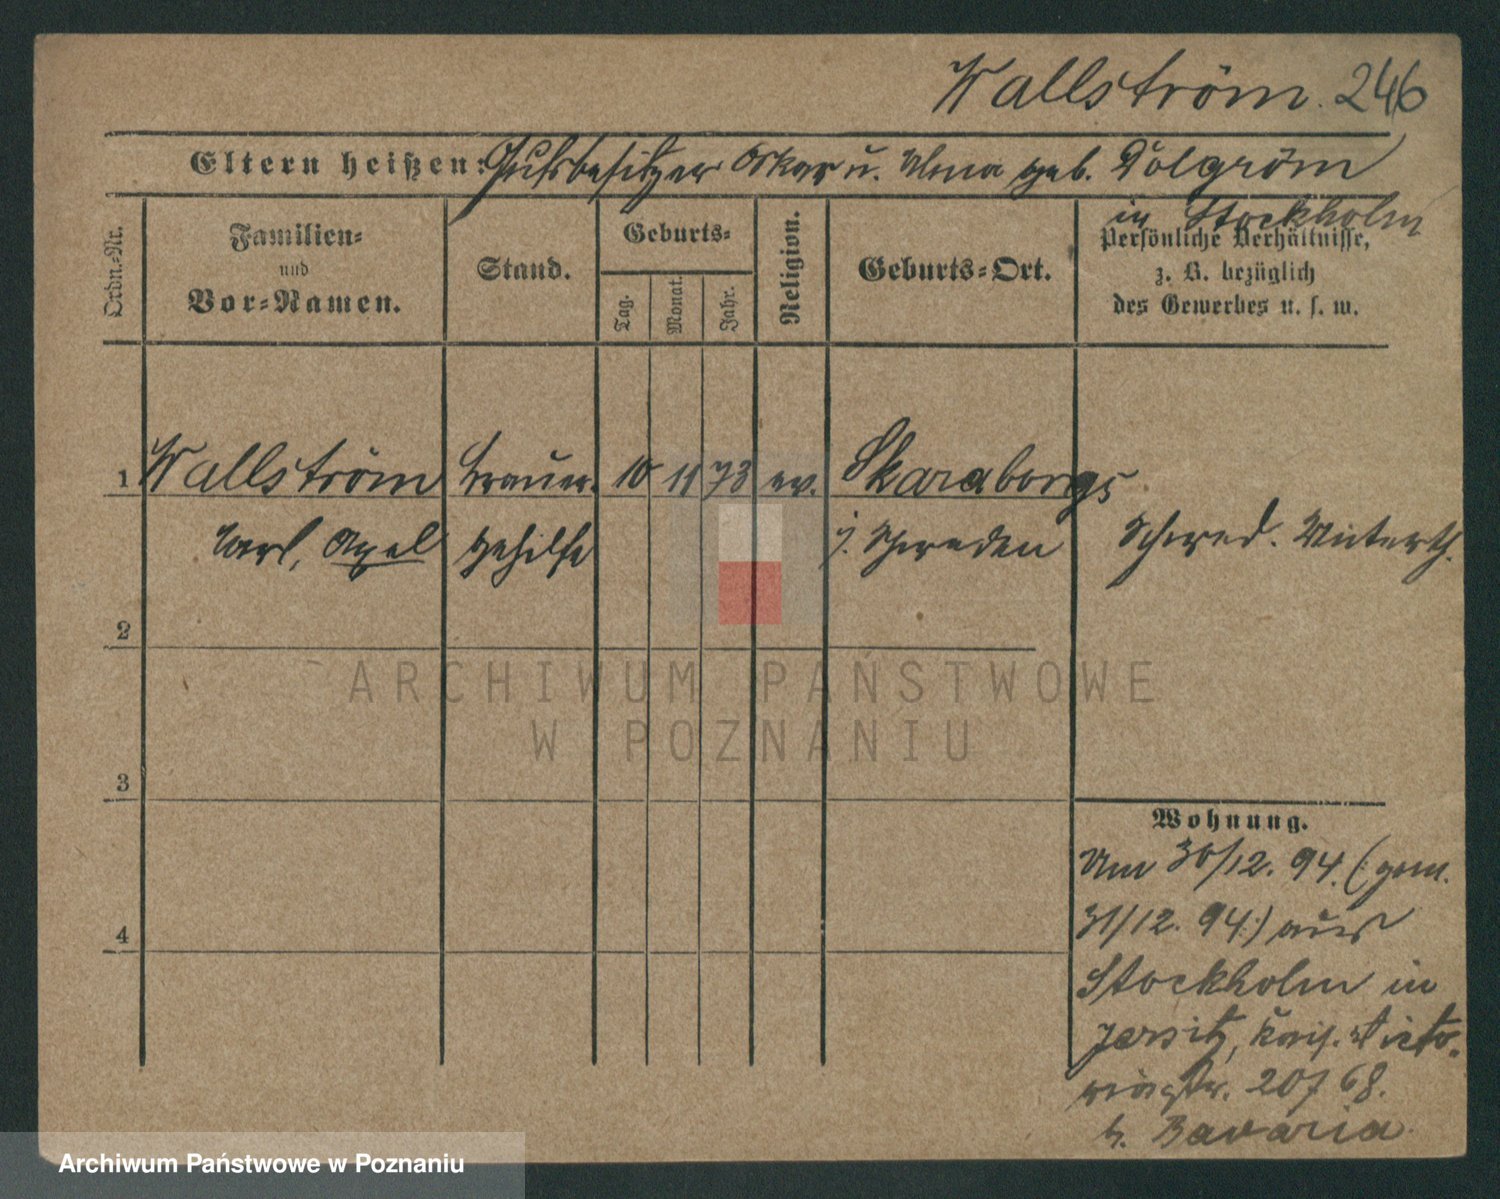 Wallström. 246
Eltern heißen: Gutsbesitzer Oskar u. Alma geb. Dolgröm
in Stockholm
Ordn.-Nr.
Familien-
und
Vor-Namen.
Stand.
Geburts-
Tag.
Monat.
Jahr.
Religion.
Geburts-Ort.
Persönliche Verhältnisse,
z. B. bezüglich
des Gewerbes u. s. w.
1 Wallström Brauer- 10 11 73 ev. Skaraborgs
Carl, Axel gehilfe i. Schweden Schwed. Unterth.
2
3
4
Wohnung.
Am 30/12. 94. (gem.
31/12. 94.) aus
Stockholm in
Jersitz, Kais. Victo-
riastr. 207 68.
b. Bavaria.
ARCHIWUM PAŃSTWOWE
W POZNANIU
Archiwum Państwowe w Poznaniu